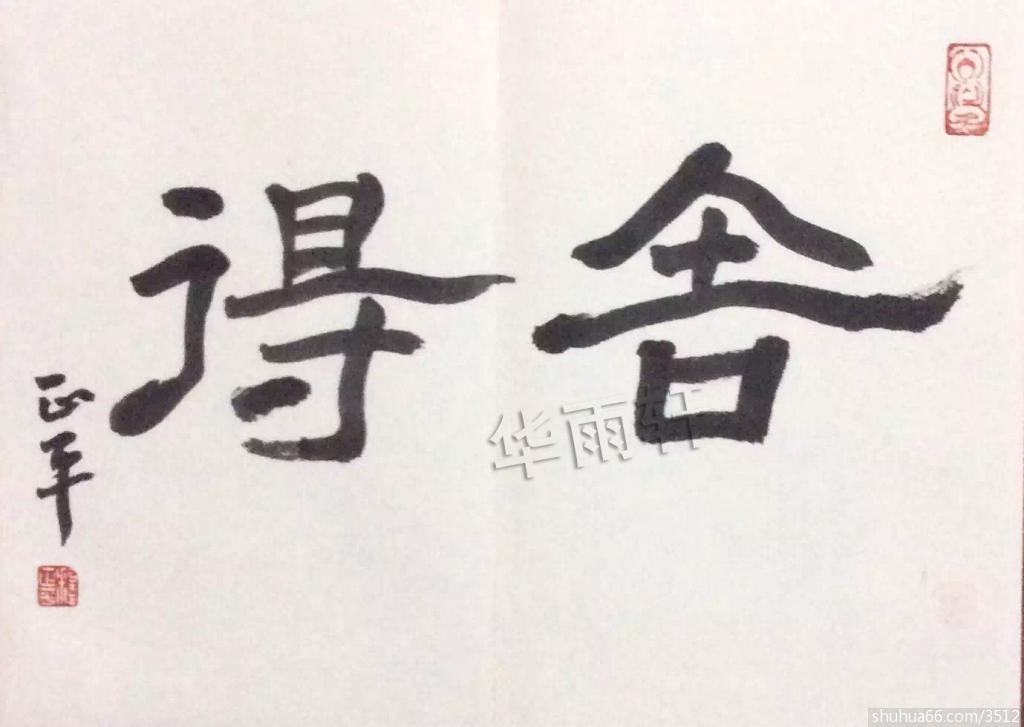 舍得
正平
华雨轩
shuhua66.com/3512